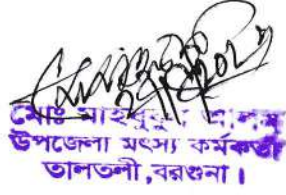 মোঃ মাহবুবুল আলম
উপজেলা মৎস্য কর্মকর্তা
তালতলী,বরগুনা।